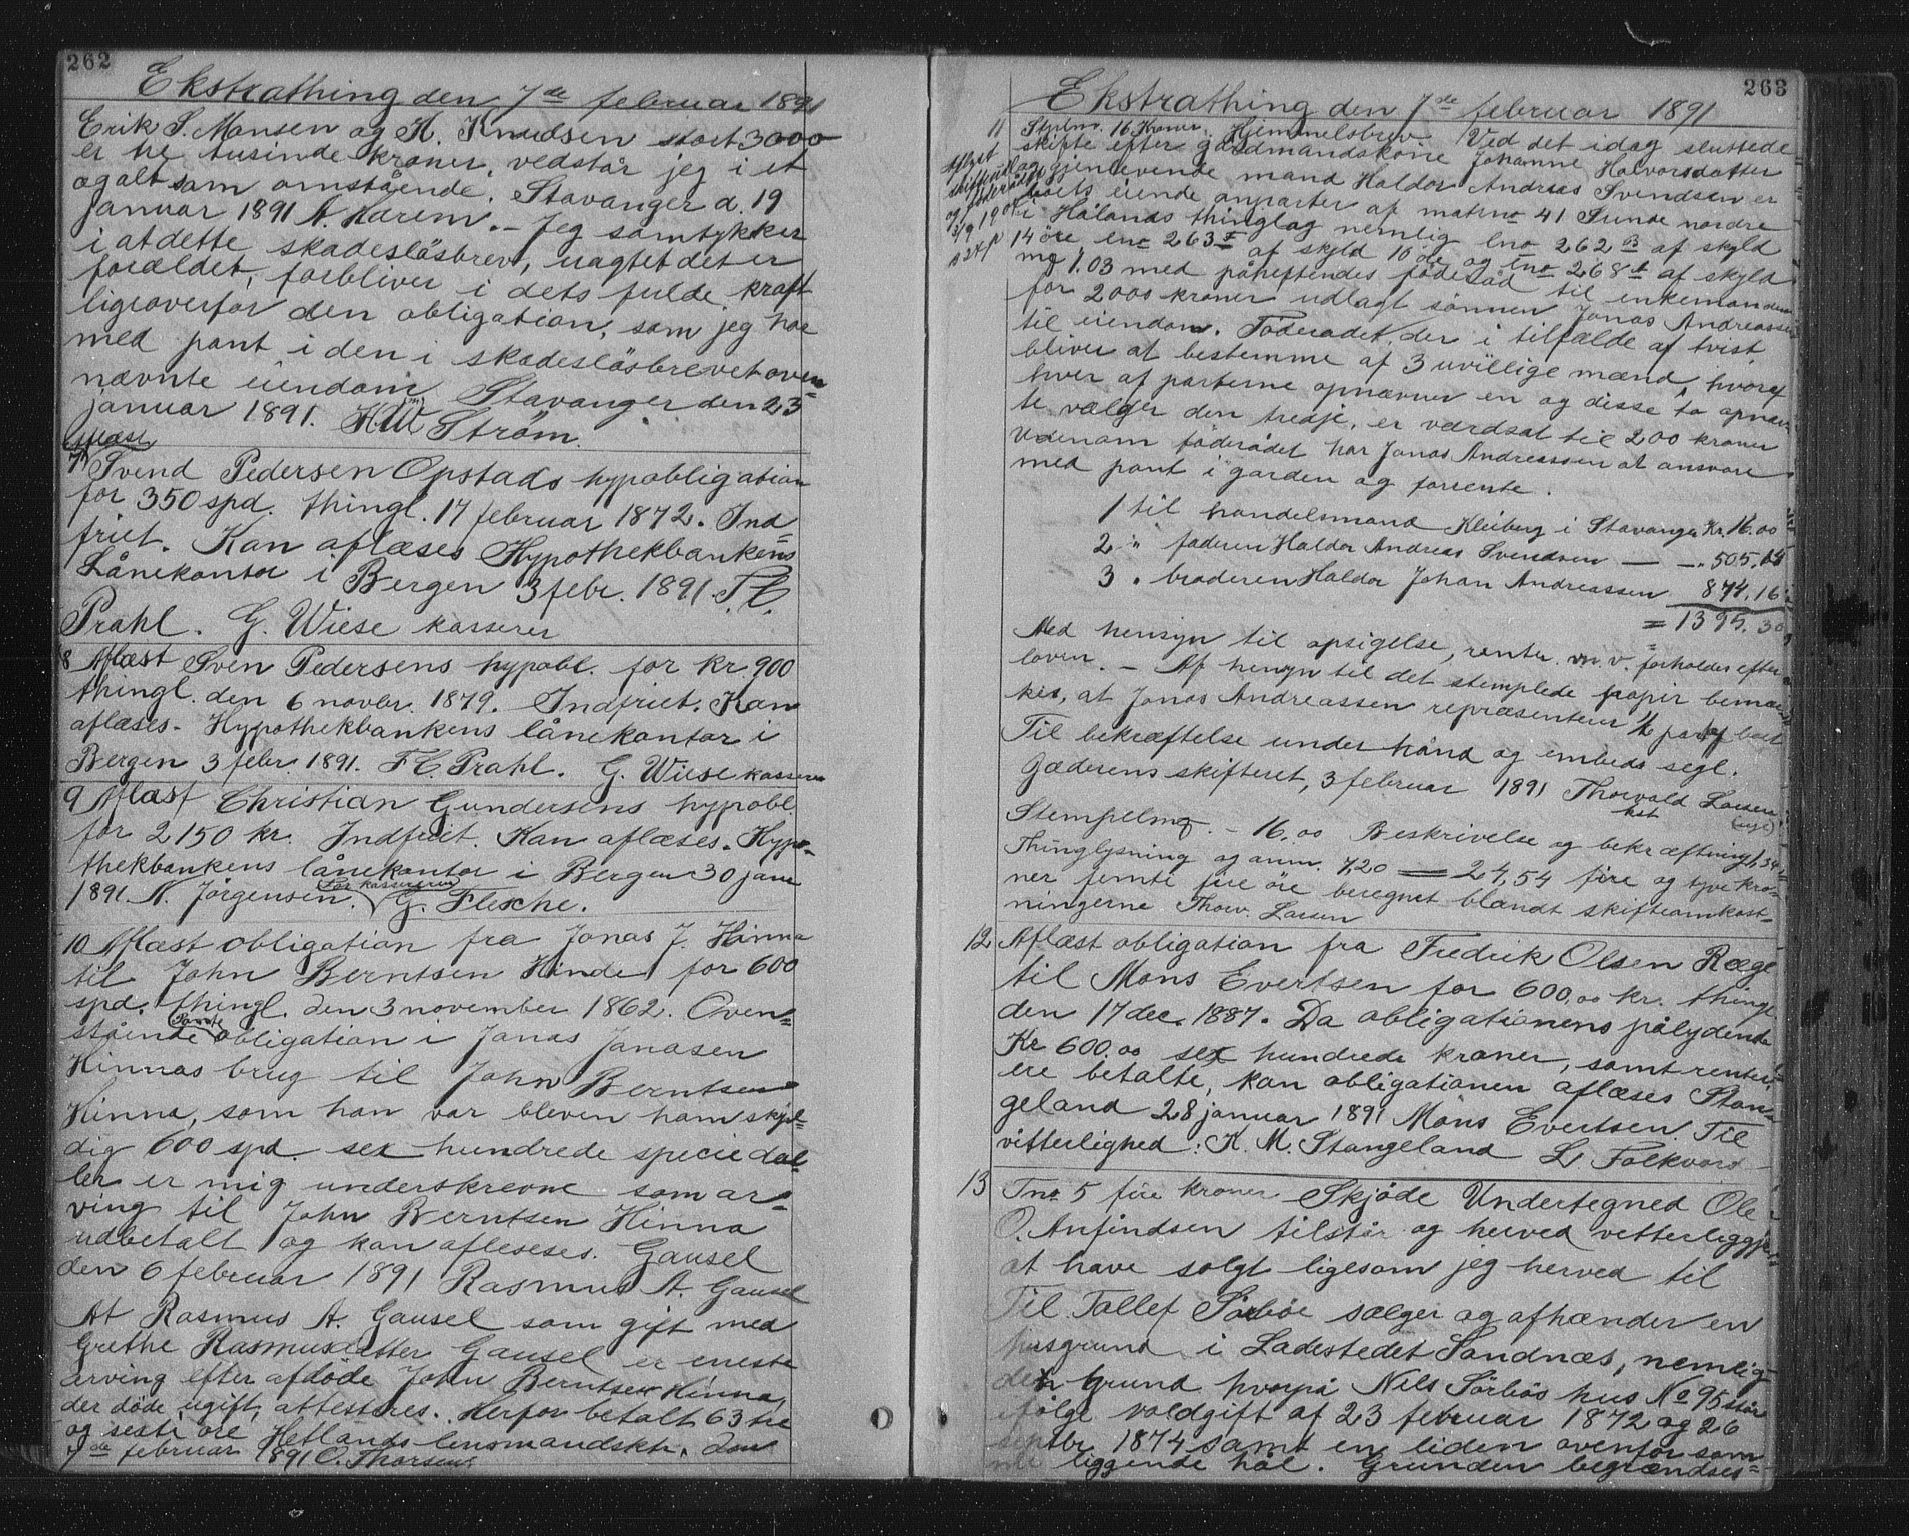 262
Ekstrathing den 7de februar 1891
Erik S. Monsen og K. Knudsen stort 3000
er tre tusinde kroner, vedstår jeg i et
og alt som omstående. Stavanger d. 19
januar 1891 N. Karem. – Jeg samtykker
i at dette skadesløsbrev, uagtet det er
forældet, forbliver i dets fulde kraft
ligeoverfor den obligation, som jeg har
med pant i den i skadesløsbrevet oven
nævnte eiendom. Stavanger den 23
januar 1891. H.W. Strøm.
Aflæst
7 Svend Pedersen Opstads hypobligation
for 350 spd. thingl. 17 februar 1872. Ind=
friet. Kan aflæses Hypothekbankens
Lånekontor i Bergen 3 febr. 1891. F.C.
Prahl. G. Wiese kasserer
8 Aflæst Sven Pedersens hypobl. for kr. 900
thingl. den 6 novbr. 1879. Indfriet. Kan
aflæses. Hypothekbankens lånekontor i
Bergen 3 febr. 1891. F C Prahl. G. Wiese kasserer
9 Aflæst Christian Gundersens hypobl
for 2150 kr. Indfriet. Kan aflæses. Hypo-
thekbankens lånekontor i Bergen 30 janr
1891. N. Jörgensen. For kassereren G. Flesche.
10 Aflæst obligation fra Jonas J. Hinna
til John Berntsen Hinde for 600
spd. thingl. den 3 november 1862. Oven=
stående Pante obligation i Jonas Jonasen
Hinnas brug til John Berntsen
Hinna, som han var bleven ham skyl=
dig 600 spd. sex hundrede specie dal=
ler er mig underskrevne som ar=
ving til John Berntsen Hinna
udbetalt og kan afleses. Gausel
den 6 februar 1891 Rasmus A. Gausel
At Rasmus A. Gausel som gift med
Grethe Rasmusdatter Gausel er eneste
arving efter afdöde John Berntsen Hinna,
der döde ugift, attesteres. Herfor betalt 63 tre
og sesti öre Hetlands lensmandsktr. den
7de februar 1891 O. Thorsen
263
Ekstrathing den 7de februar 1891
11 Stplm. 16 Kroner. Hjemmelsbrev Ved det idag sluttede
skifte efter gårdmandskone Johanne Halvorsdatter
og gjenlevende mand Haldor Andreas Svendsen er
boets eiende anparter af matrno 41 Sunde nordre
i Hålands thinglag nemlig lno 262 b af skyld
14 öre, lno 263 af skyld 10 öre og lno 268 af skyld
mg 1.03 med påheftendes föderåd til enkemanden
for 2000 kroner udlagt sönnen Jonas Andreassen
til eiendom. Föderådet, der i tilfælde af tvist
bliver at bestemme af 3 uvillige mænd, hvoraf
hver af parterne opnævner en og disse to opnævn
te vælger den tredje, er værdsat til 200 kroner
Udenom föderådet har Jonas Andreassen at ansvare
med pant i gården og forrente.
1 til handelsmand Kleiberg i Stavanger Kr. 16.00
2 " faderen Haldor Andreas Svendsen — –. 505.14
3 . broderen Haldor Johan Andreassen 874.16
= 1395.30
Med hensyn til opsigelse, renter m. v. forholdes efter
loven. – Af hensyn til det stemplede papir bemær
kes, at Jonas Andreassen repræsenterer part af boet
Til bekræftelse under hånd og embeds segl.
Jæderens skifteret, 3 februar 1891 Thorvald Larsen
kst
Stempelmg. – 16.00 Beskrivelse og bekræftning 1,34
Thinglysning og anm. 7,20 = 24,54 fire og tyve kro-
ner femti fire öre beregnet blandt skifteomkost-
ningerne Thorv. Larsen
12 Aflæst obligation fra Fredrik Olsen Ræge
til Mons Evertsen for 600,00 kr. thingl
den 17 dec. 1887. Da obligationens pålydende
Kr 600.00 sex hundrede kroner, samt renter,
ere betalte, kan obligationen aflæses Stan=
geland 28 januar 1891 Mons Evertsen. Til
vitterlighed: K. M. Stangeland L. Folkvord
13 Tno. 5 fire kroner Skjöde Undertegned Ole
O. Anfindsen tilstår og herved vitterliggjör
at have solgt ligesom jeg herved til
Til Tallef Sörböe sælger og afhænder en
husgrund i Ladestedet Sandnæs, nemlig
den Grund hvorpå Nils Sörbös hus No 95 står
ifölge voldgift af 23 februar 1872 og 26
septbr. 1874 samt en liden ovenfor som
liggende hål. Grunden begrændses